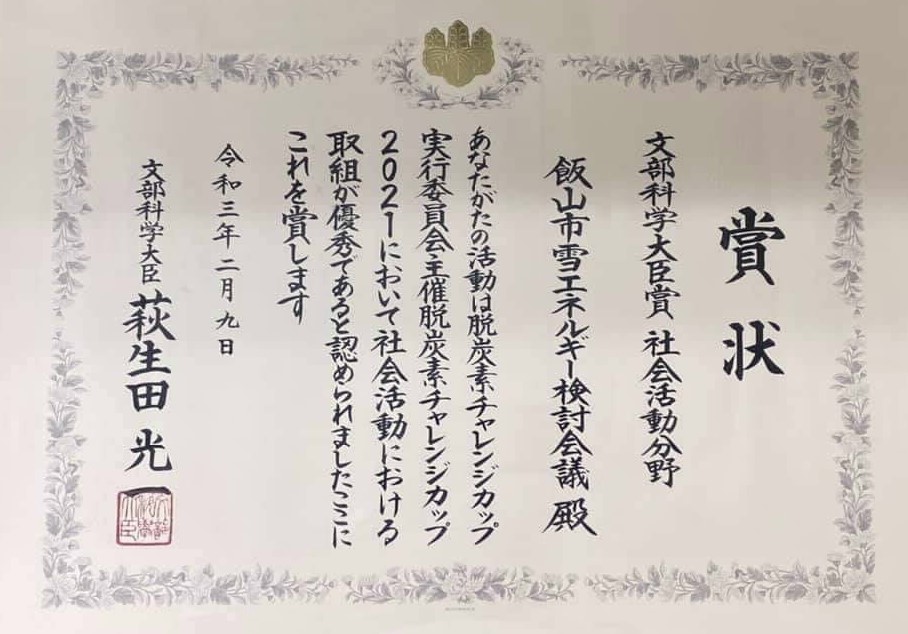 賞状
文部科学大臣賞 社会活動分野
飯山市雪エネルギー検討会議 殿
あなたがたの活動は脱炭素チャレンジカップ
実行委員会主催脱炭素チャレンジカップ
2021において社会活動における
取組が優秀であると認められましたここに
これを賞します
令和三年二月九日
文部科学大臣 萩生田光一